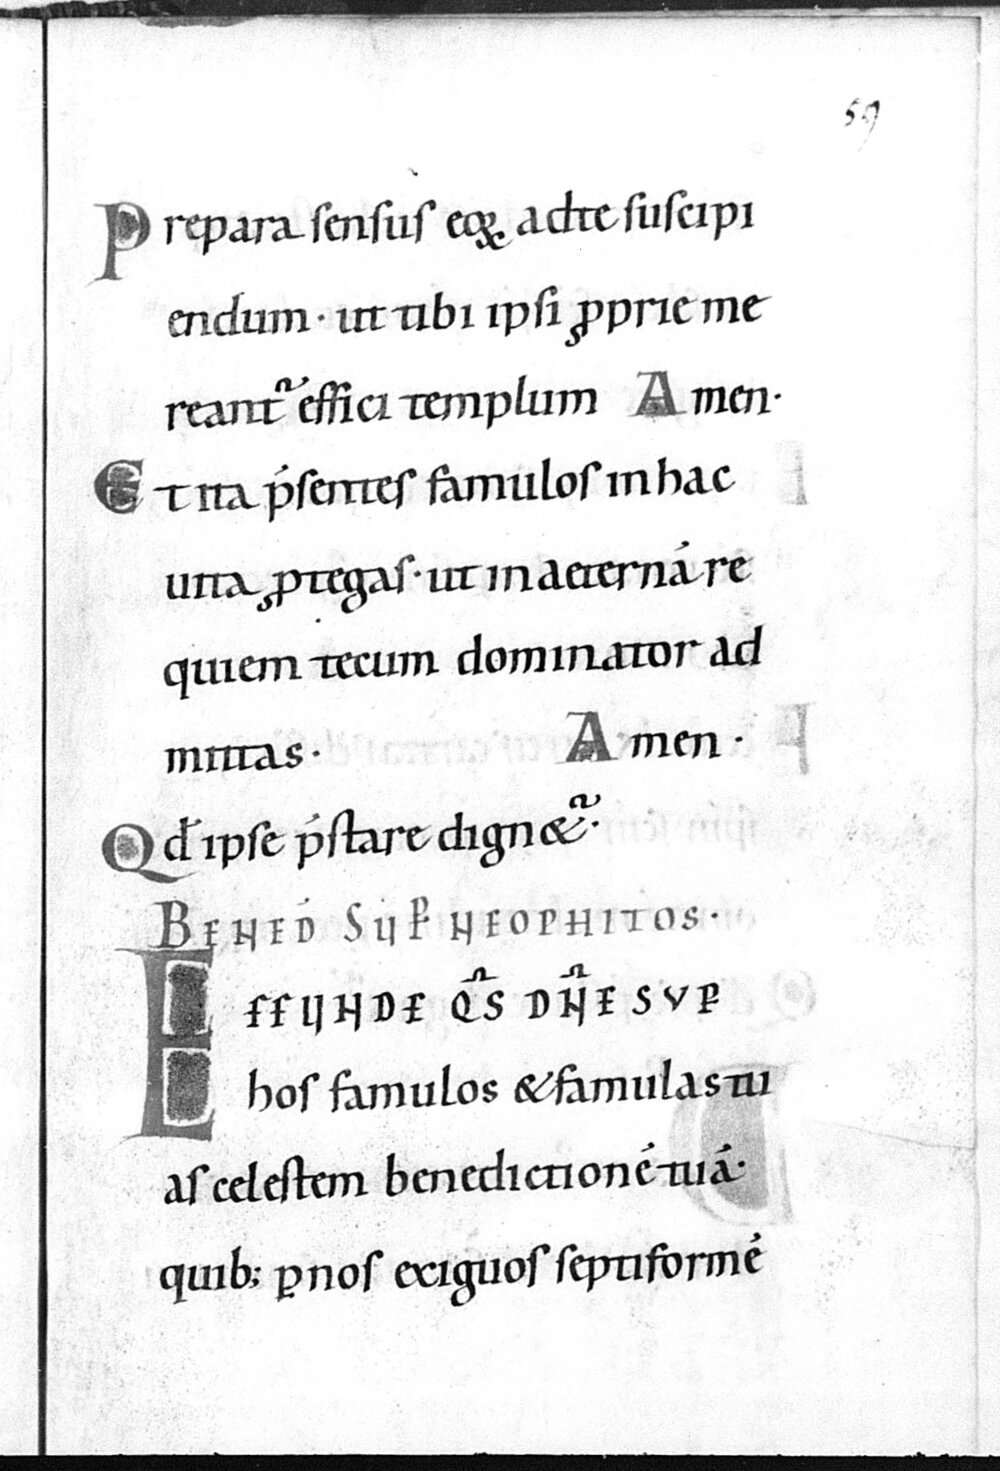 59
Prepara senſuſ eoꝝ ad te ſuſcipi
endum · ut tibi ipſi ꝓprie me
reant᷑ effici templum Amen·
Et ita p̓ſenteſ famuloſ in hac
uita ꝓtegaſ· ut in aeterná re
quiem tecum dominator ad
mittas· Amen·
Qđ ipſe p̓ſtare dign&᷑·
BENED́ SUP̄ NEOPHITOS·
EFFUNDE Q̄S DN̄E SVP̄
hoſ famulos & famulas tu
aſ celeſtem benedictioné tuá·
quib; ꝑ noſ exiguoſ ſeptiformé